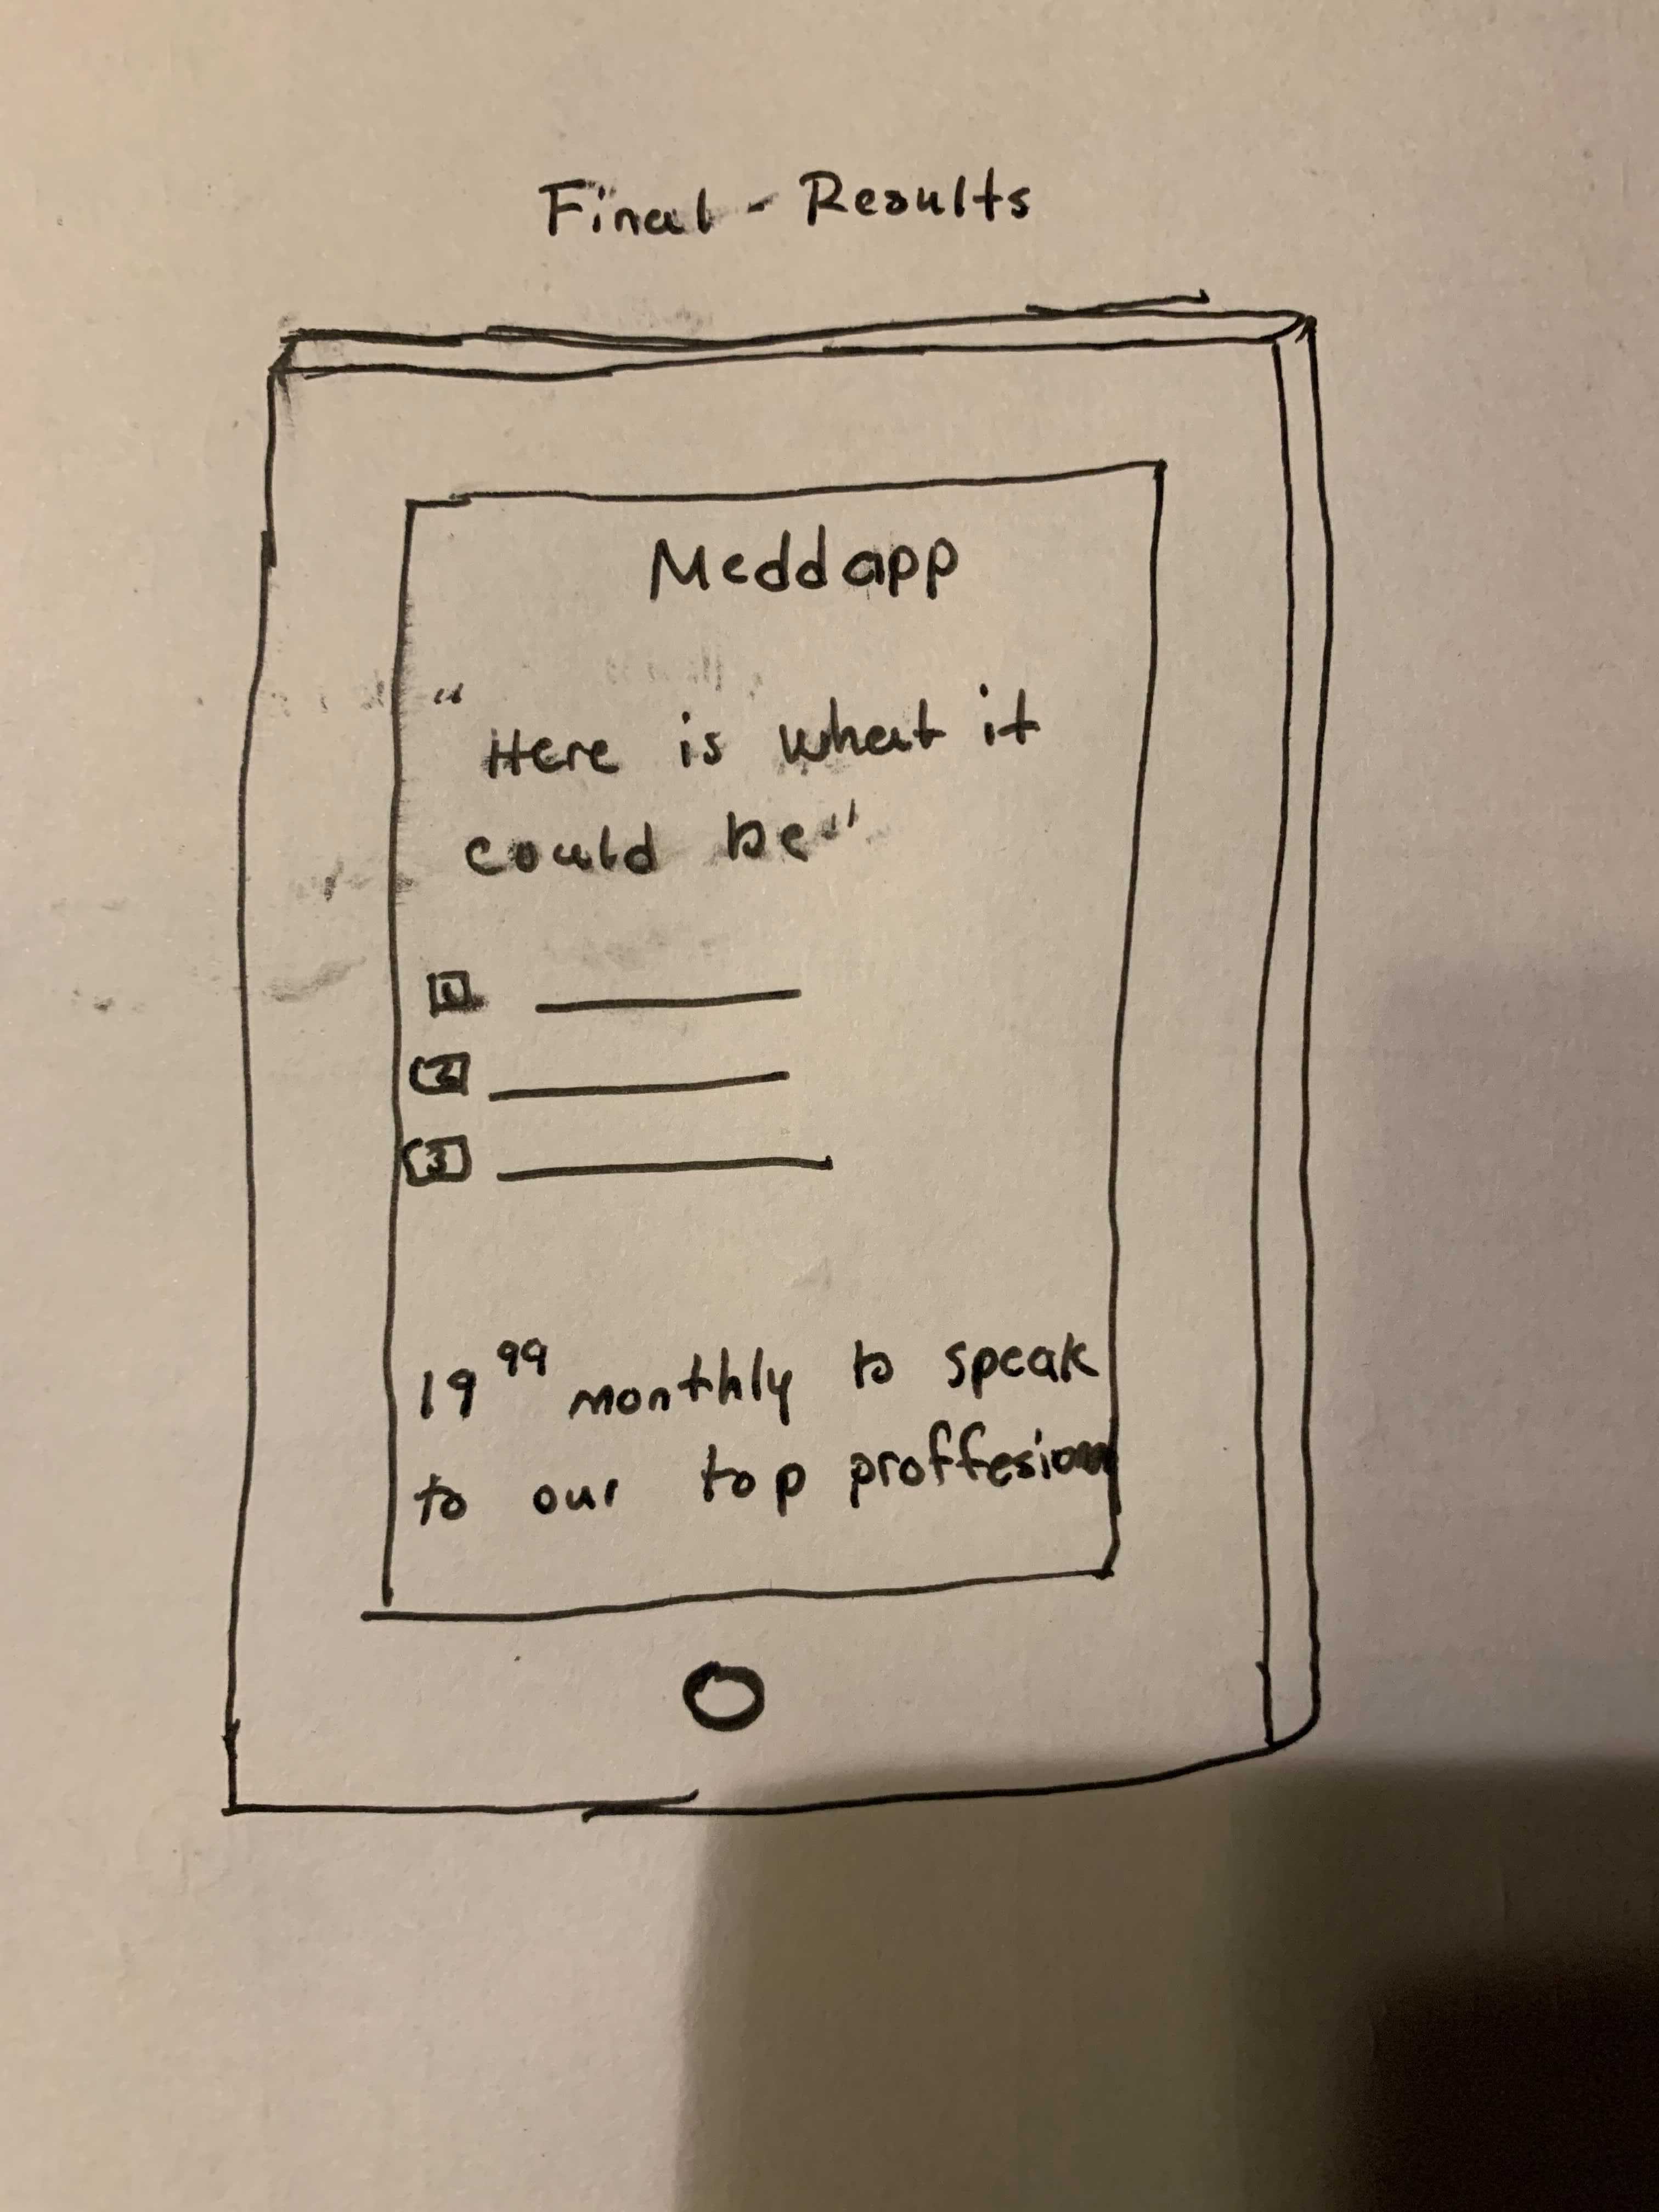 Final - Results
Meddapp
"Here is what it
could be"
1
2
3
19 99 monthly to speak
to our top